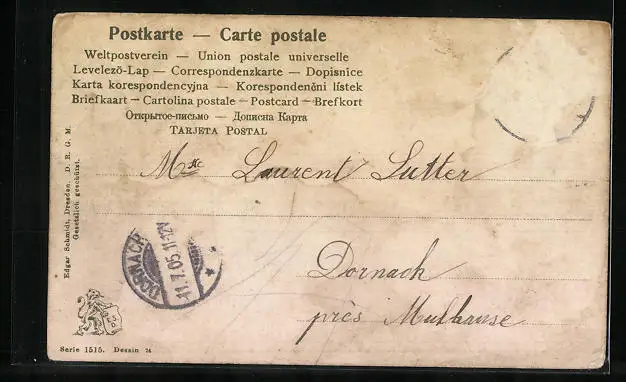 Postkarte — Carte postale
Weltpostverein — Union postale universelle
Levelező-Lap — Correspondenzkarte — Dopisnice
Karta korespondencyjna — Korespondenční lístek
Briefkaart — Cartolina postale — Postcard — Brefkort
Открытое-письмо — Дописна Карта
TARJETA POSTAL
Mme Laurent Sutter
Dornach
près Mulhouse
DORNACH
11.7.05.11-12V
Edgar Schmidt, Dresden, D. R. G. M.
Gesetzlich geschützt.
Serie 1515. Dessin 74